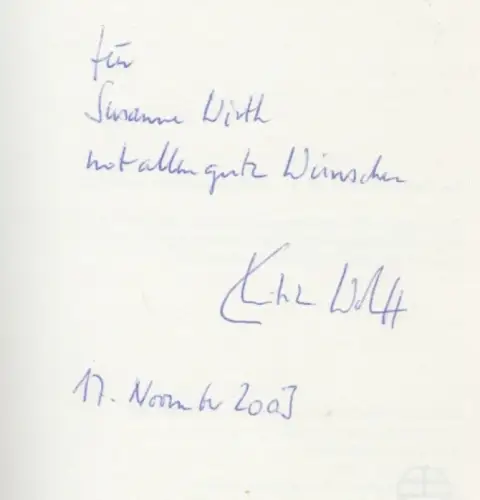 Für
Susanne Wirth
mit allen guten Wünschen
Wolff
17. November 2003